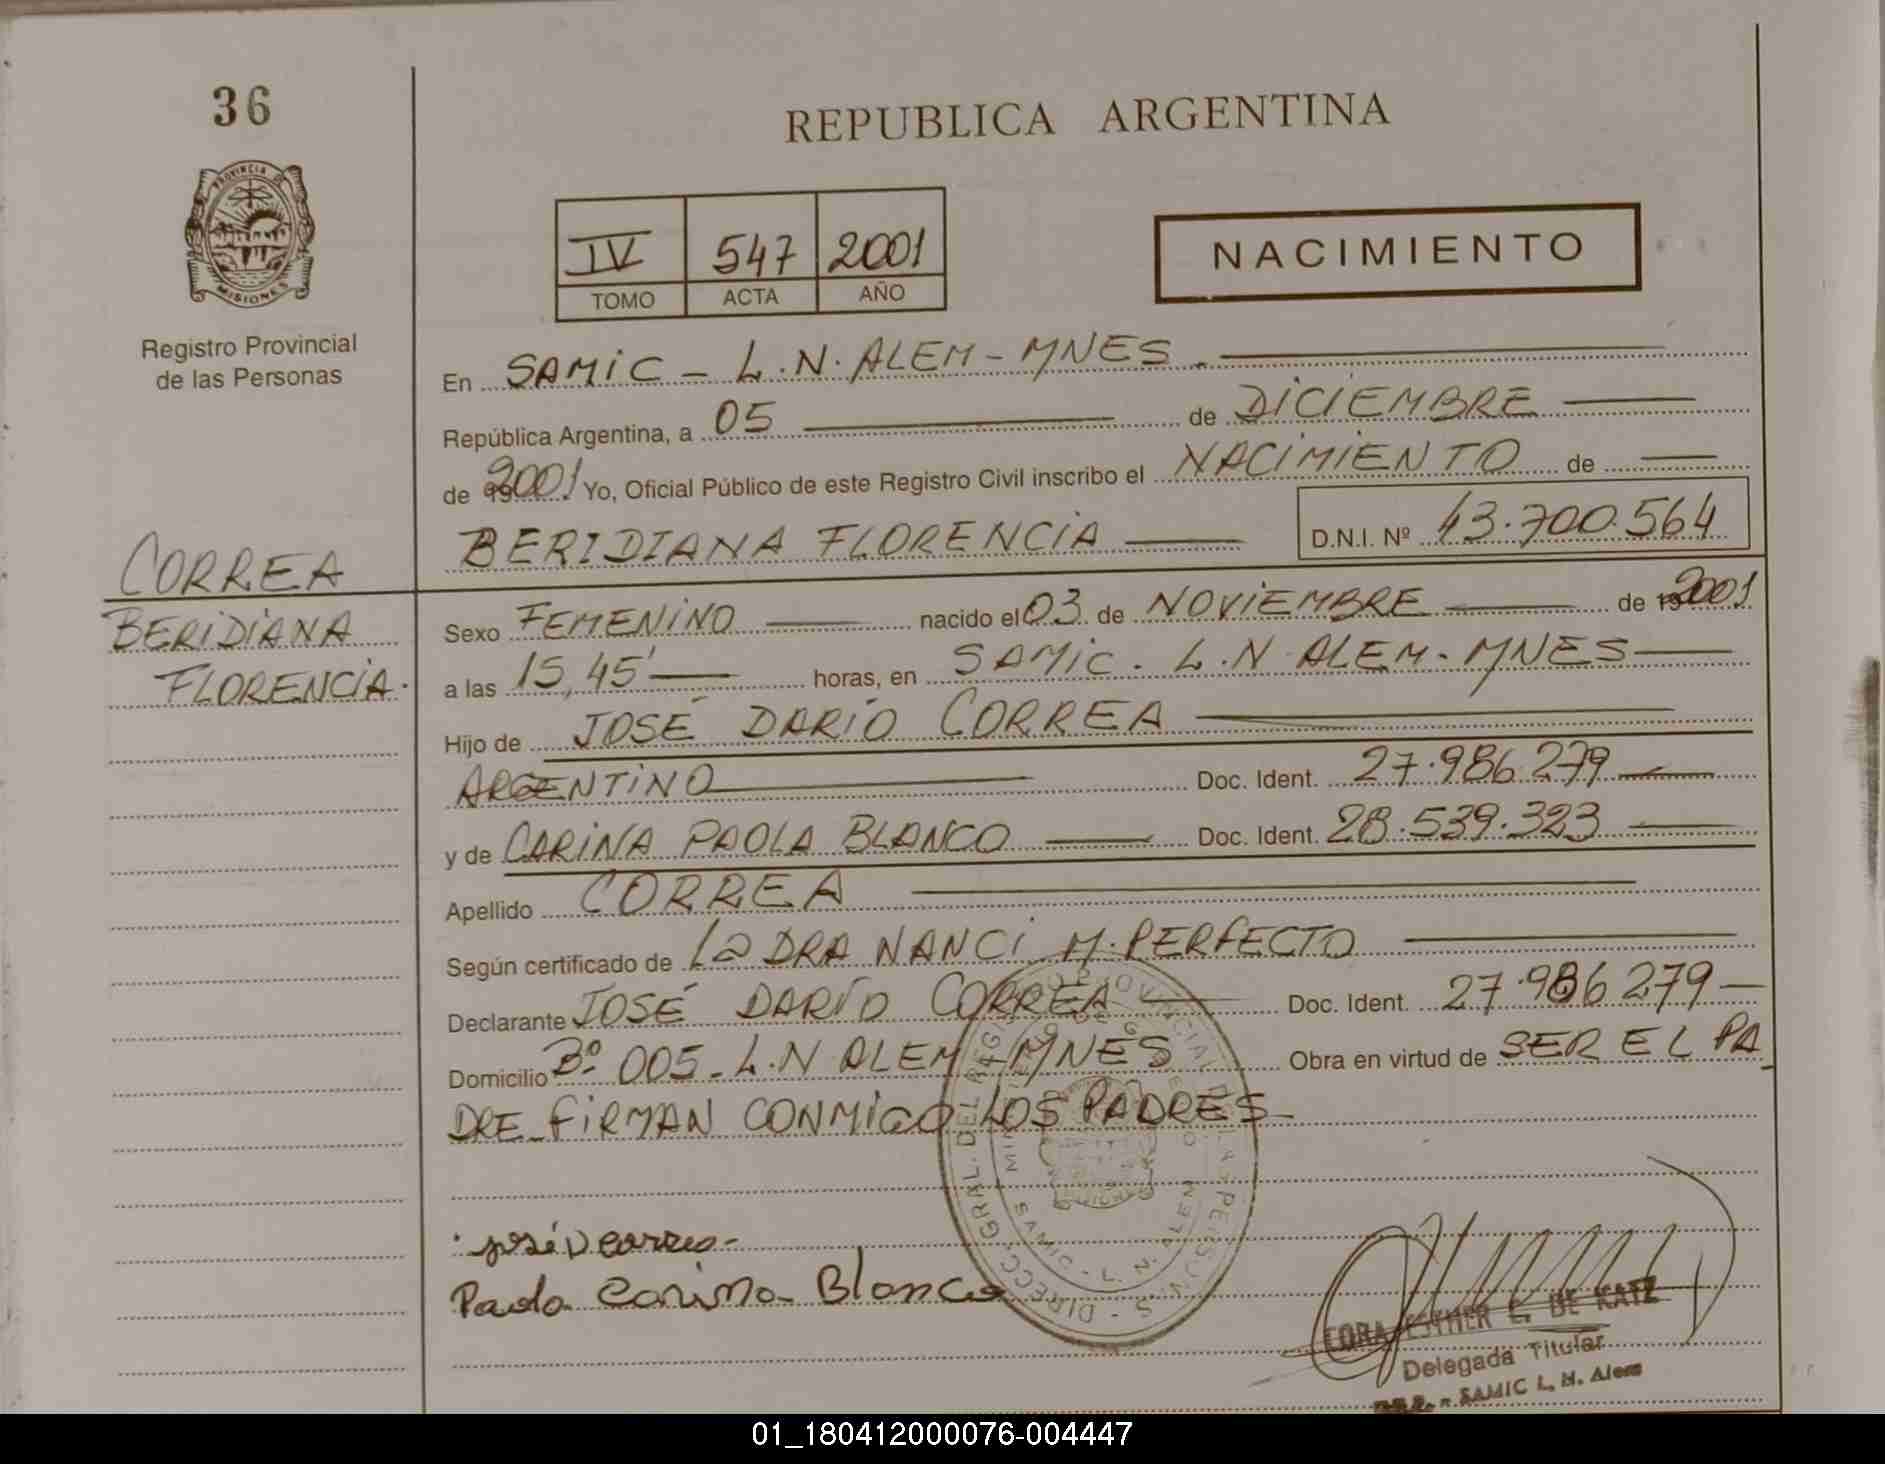 36
REPUBLICA ARGENTINA
PROVINCIA D
MISIONES
Registro Provincial
de las Personas
IV 547 2001
TOMO ACTA AÑO
NACIMIENTO
En SAMIC - L.N. ALEM - MNES.
República Argentina, a 05 de DICIEMBRE
de 2001 Yo, Oficial Público de este Registro Civil inscribo el NACIMIENTO de
BERIDIANA FLORENCIA D.N.I. Nº 43.700.564
CORREA
BERIDIANA
FLORENCIA.
Sexo FEMENINO nacido el 03 de NOVIEMBRE de 2001
a las 15,45' horas, en SAMIC. L.N ALEM - MNES
Hijo de JOSÉ DARÍO CORREA
ARGENTINO Doc. Ident. 27.986279
y de CARINA PAOLA BLANCO Doc. Ident. 28.539.323
Apellido CORREA
Según certificado de La DRA NANCI M. PERFECTO
Declarante JOSÉ DARÍO CORREA Doc. Ident. 27.986279
Domicilio Bº 005 - L.N ALEM - MNES Obra en virtud de SER EL PA
DRE - FIRMAN CONMIGO LOS PADRES -
DIRECC. GRAL. DEL REGISTRO PROVINCIAL DE LAS PERSONAS
SAMIC - L. N. ALEM
José D Correa -
Paola Carina Blanco
CORA ESTHER C. DE KATZ
Delegada Titular
SAMIC L. N. Alem
01_180412000076-004447